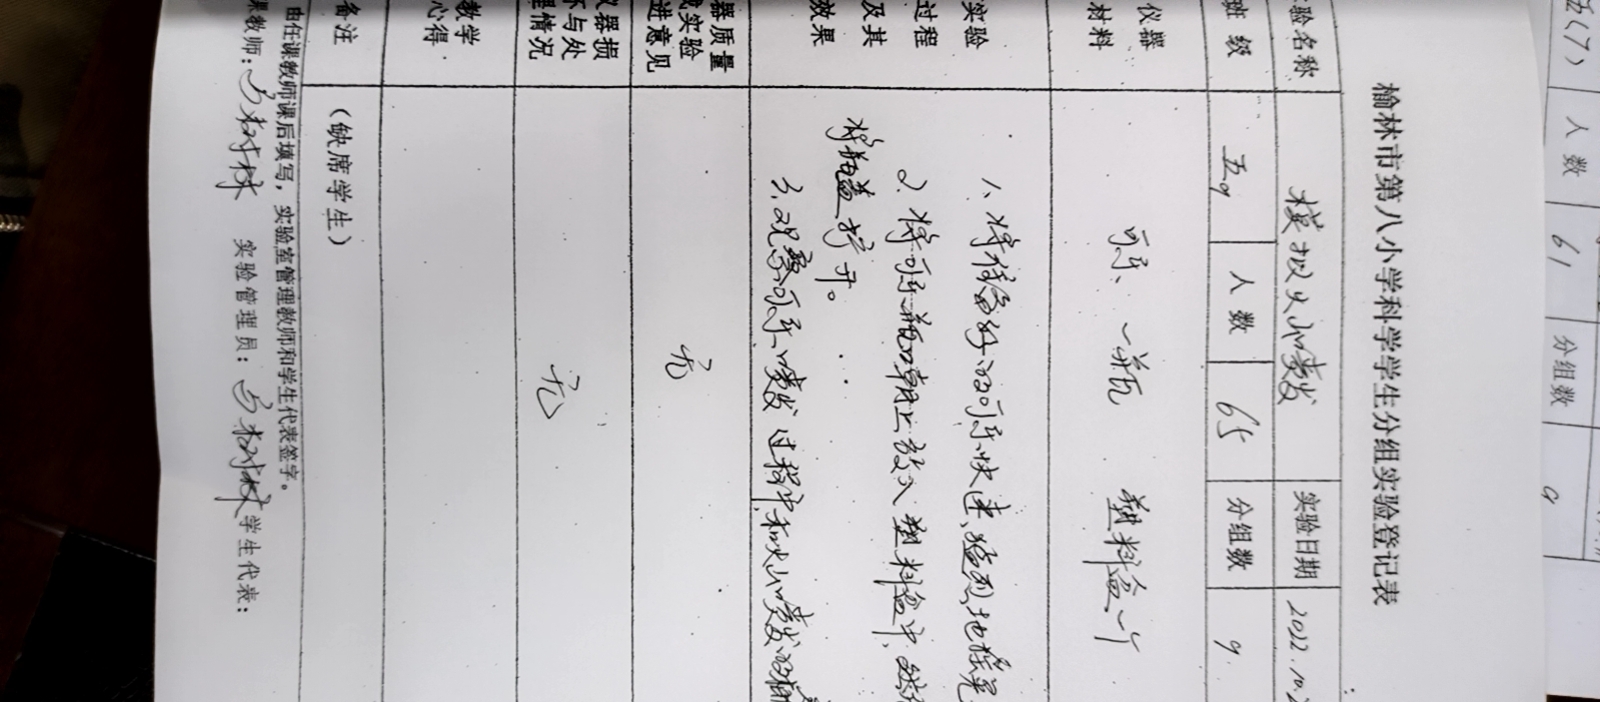 榆林市第八小学科学学生分组实验登记表
验名称 模拟火山喷发 实验日期 2022.10.2
班级 五9 人数 65 分组数 9
仪器
材料
可乐、一瓶 塑料盒一个
实验
过程
及其
效果
1、将准备好的可乐快速、猛烈地摇晃
2、将可乐瓶口朝上放入塑料盒中,然
将瓶盖拧开。
3、观察可乐喷发过程中和火山喷发的相
器质量
实验
进意见
无
仪器损
坏与处
理情况
无
教学
心得
备注
(缺席学生)
由任课教师课后填写,实验室管理教师和学生代表签字。
课教师: 实验管理员: 学生代表:
五(7) 人数 61 分组数 9